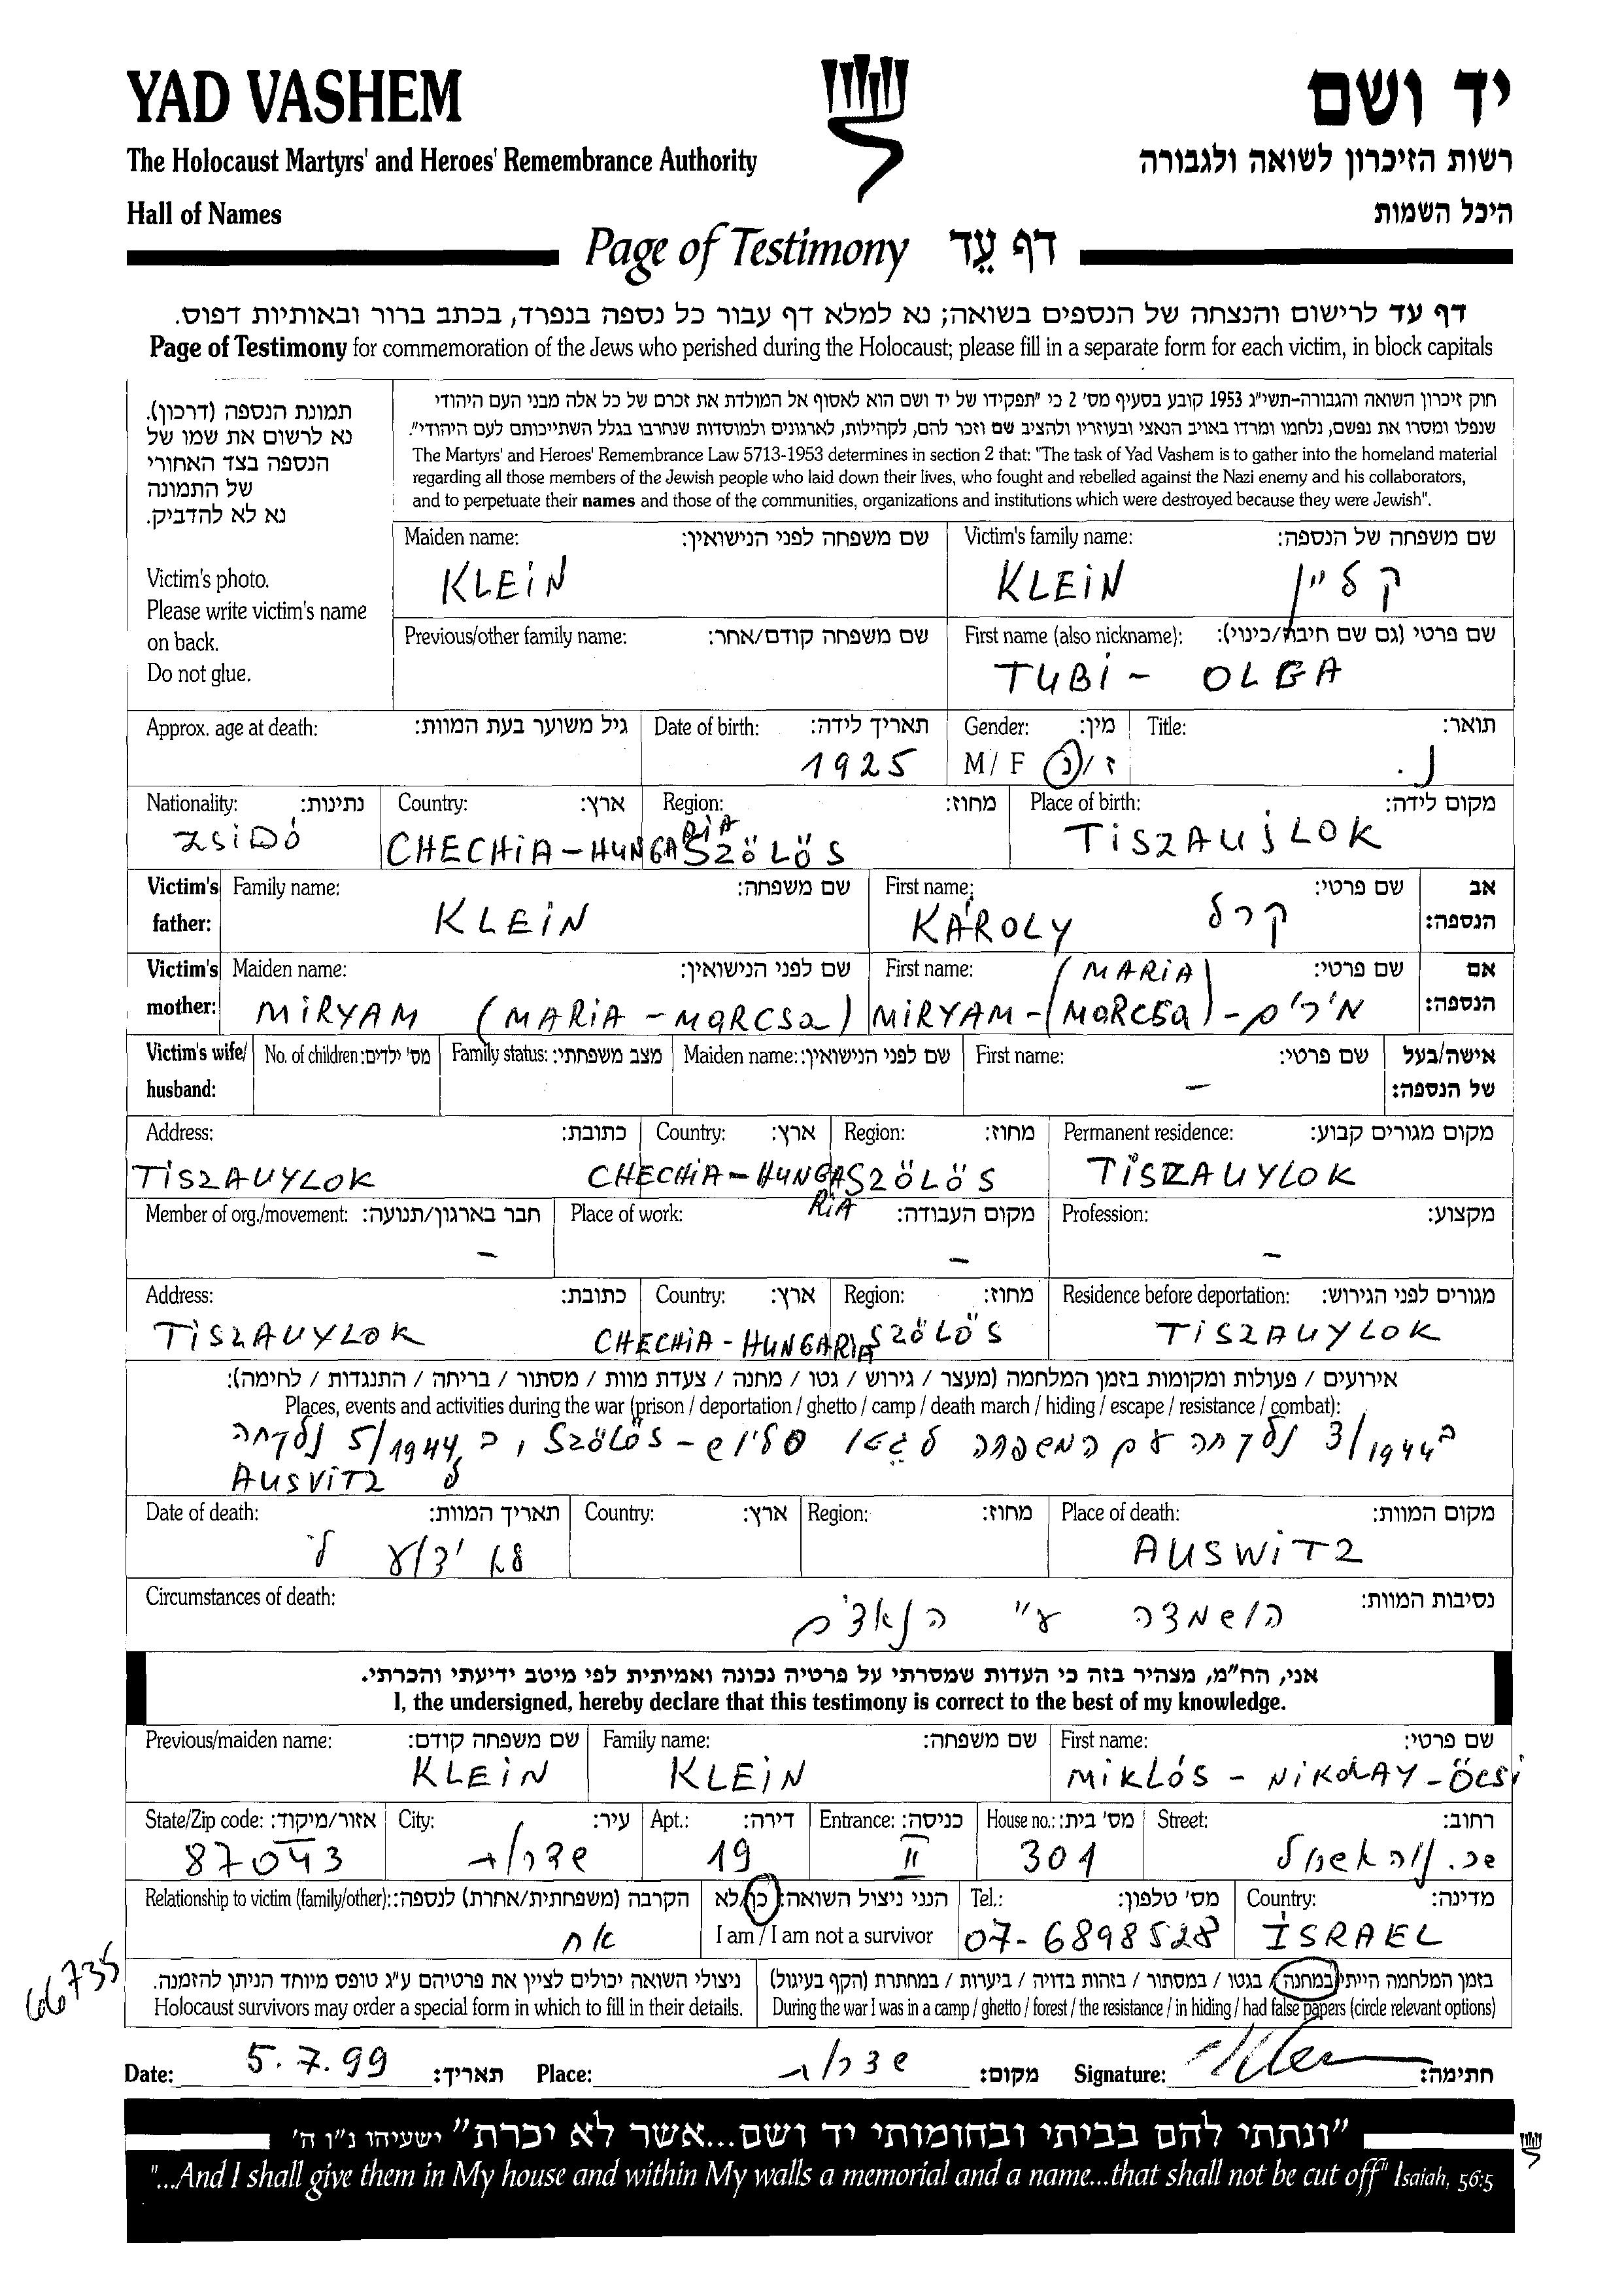 YAD VASHEM
יד ושם
The Holocaust Martyrs' and Heroes' Remembrance Authority
רשות הזיכרון לשואה ולגבורה
Hall of Names
היכל השמות
Page of Testimony דף עֵד
דף עד לרישום והנצחה של הנספים בשואה; נא למלא דף עבור כל נספה בנפרד, בכתב ברור ובאותיות דפוס.
Page of Testimony for commemoration of the Jews who perished during the Holocaust; please fill in a separate form for each victim, in block capitals
תמונת הנספה (דרכון).
נא לרשום את שמו של
הנספה בצד האחורי
של התמונה
נא לא להדביק.
Victim's photo.
Please write victim's name
on back.
Do not glue.
חוק זיכרון השואה והגבורה-תשי"ג 1953 קובע בסעיף מס' 2 כי "תפקידו של יד ושם הוא לאסוף אל המולדת את זכרם של כל אלה מבני העם היהודי
שנפלו ומסרו את נפשם, נלחמו ומרדו באויב הנאצי ובעוזריו ולהציב שם וזכר להם, לקהילות, לארגונים ולמוסדות שנחרבו בגלל השתייכותם לעם היהודי".
The Martyrs' and Heroes' Remembrance Law 5713-1953 determines in section 2 that: "The task of Yad Vashem is to gather into the homeland material
regarding all those members of the Jewish people who laid down their lives, who fought and rebelled against the Nazi enemy and his collaborators,
and to perpetuate their names and those of the communities, organizations and institutions which were destroyed because they were Jewish".
Maiden name: שם משפחה לפני הנישואין: Victim's family name: שם משפחה של הנספה:
KLEIN KLEIN קליין
Previous/other family name: שם משפחה קודם/אחר: First name (also nickname): שם פרטי (גם שם חיבה/כינוי):
TUBI - OLGA
Approx. age at death: גיל משוער בעת המוות: Date of birth: תאריך לידה: Gender: מין: Title: תואר:
1925 M/ F ז/נ
Nationality: נתינות: Country: ארץ: Region: מחוז: Place of birth: מקום לידה:
ZSIDÓ CHECHIA-HUNGARIA SZÖLÖS TISZAUJLOK
Victim's father: Family name: שם משפחה: First name: שם פרטי: אב הנספה:
KLEIN KÁROLY קרל
Victim's mother: Maiden name: שם לפני הנישואין: First name: שם פרטי: אם הנספה:
MIRYAM (MARIA - MARCSA) MIRYAM - (MARIA) (MARCSA) - מירים
Victim's wife/ husband: No. of children: מס' ילדים: Family status: מצב משפחתי: Maiden name: שם לפני הנישואין: First name: שם פרטי: אישה/בעל של הנספה:
-
Address: כתובת: Country: ארץ: Region: מחוז: Permanent residence: מקום מגורים קבוע:
TISZAUYLOK CHECHIA-HUNGARIA SZÖLÖS TISZAUYLOK
Member of org./movement: חבר בארגון/תנועה: Place of work: מקום העבודה: Profession: מקצוע:
- - -
Address: כתובת: Country: ארץ: Region: מחוז: Residence before deportation: מגורים לפני הגירוש:
TISZAUYLOK CHECHIA-HUNGARIA SZÖLÖS TISZAUYLOK
אירועים / פעולות ומקומות בזמן המלחמה (מעצר / גירוש / גטו / מחנה / צעדת מוות / מסתור / בריחה / התנגדות / לחימה):
Places, events and activities during the war (prison / deportation / ghetto / camp / death march / hiding / escape / resistance / combat):
ב 3/1944 נלקחה עם המשפחה לגטו סליוש - SZÖLÖS, ב 5/1944 נלקחה
ל AUSVITZ
Date of death: תאריך המוות: Country: ארץ: Region: מחוז: Place of death: מקום המוות:
לא ידוע לי AUSWITZ
Circumstances of death: נסיבות המוות:
הושמדה ע"י הנאצים
אני, הח"מ, מצהיר בזה כי העדות שמסרתי על פרטיה נכונה ואמיתית לפי מיטב ידיעתי והכרתי.
I, the undersigned, hereby declare that this testimony is correct to the best of my knowledge.
Previous/maiden name: שם משפחה קודם: Family name: שם משפחה: First name: שם פרטי:
KLEIN KLEIN MIKLÓS - NIKOLAY - ÖCSI
State/Zip code: אזור/מיקוד: City: עיר: Apt.: דירה: Entrance: כניסה: House no.: מס' בית: Street: רחוב:
87043 שדרות 19 II 301
Relationship to victim (family/other): הקרבה (משפחתית/אחרת) לנספה: הנני ניצול השואה: כן/לא Tel.: מס' טלפון: Country: מדינה:
אח I am / I am not a survivor 07-6898528 ISRAEL
66735
ניצולי השואה יכולים לציין את פרטיהם ע"ג טופס מיוחד הניתן להזמנה. בזמן המלחמה הייתי במחנה / בגטו / במסתור / בזהות בדויה / ביערות / במחתרת (הקף בעיגול)
Holocaust survivors may order a special form in which to fill in their details. During the war I was in a camp / ghetto / forest / the resistance / in hiding / had false papers (circle relevant options)
Date: 5.7.99 תאריך: Place: שדרות מקום: Signature: חתימה:
"ונתתי להם בביתי ובחומותי יד ושם...אשר לא יכרת" ישעיהו נ"ו ה'
"...And I shall give them in My house and within My walls a memorial and a name...that shall not be cut off" Isaiah, 56:5